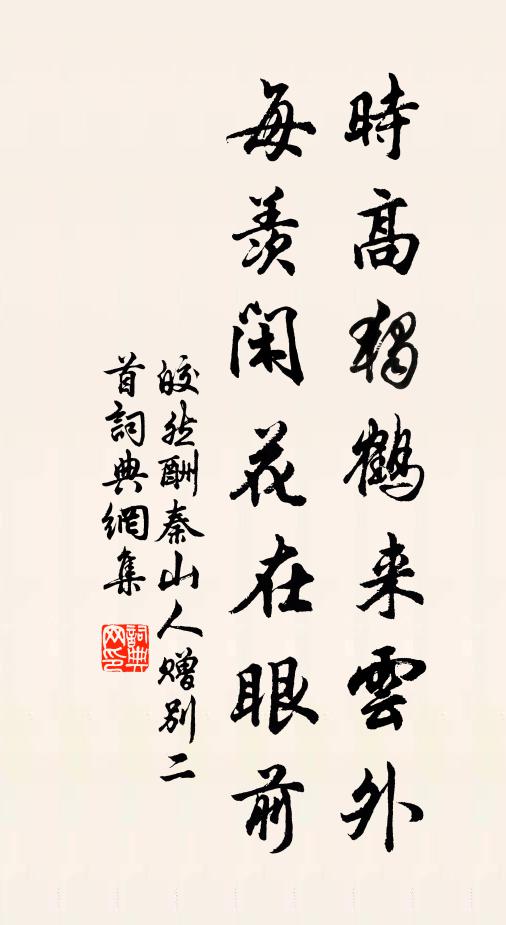 時高獨鶴来雲外
每羨閑花在眼前
皎然酬秦山人赠别二
首詞典網集
詞典
网印